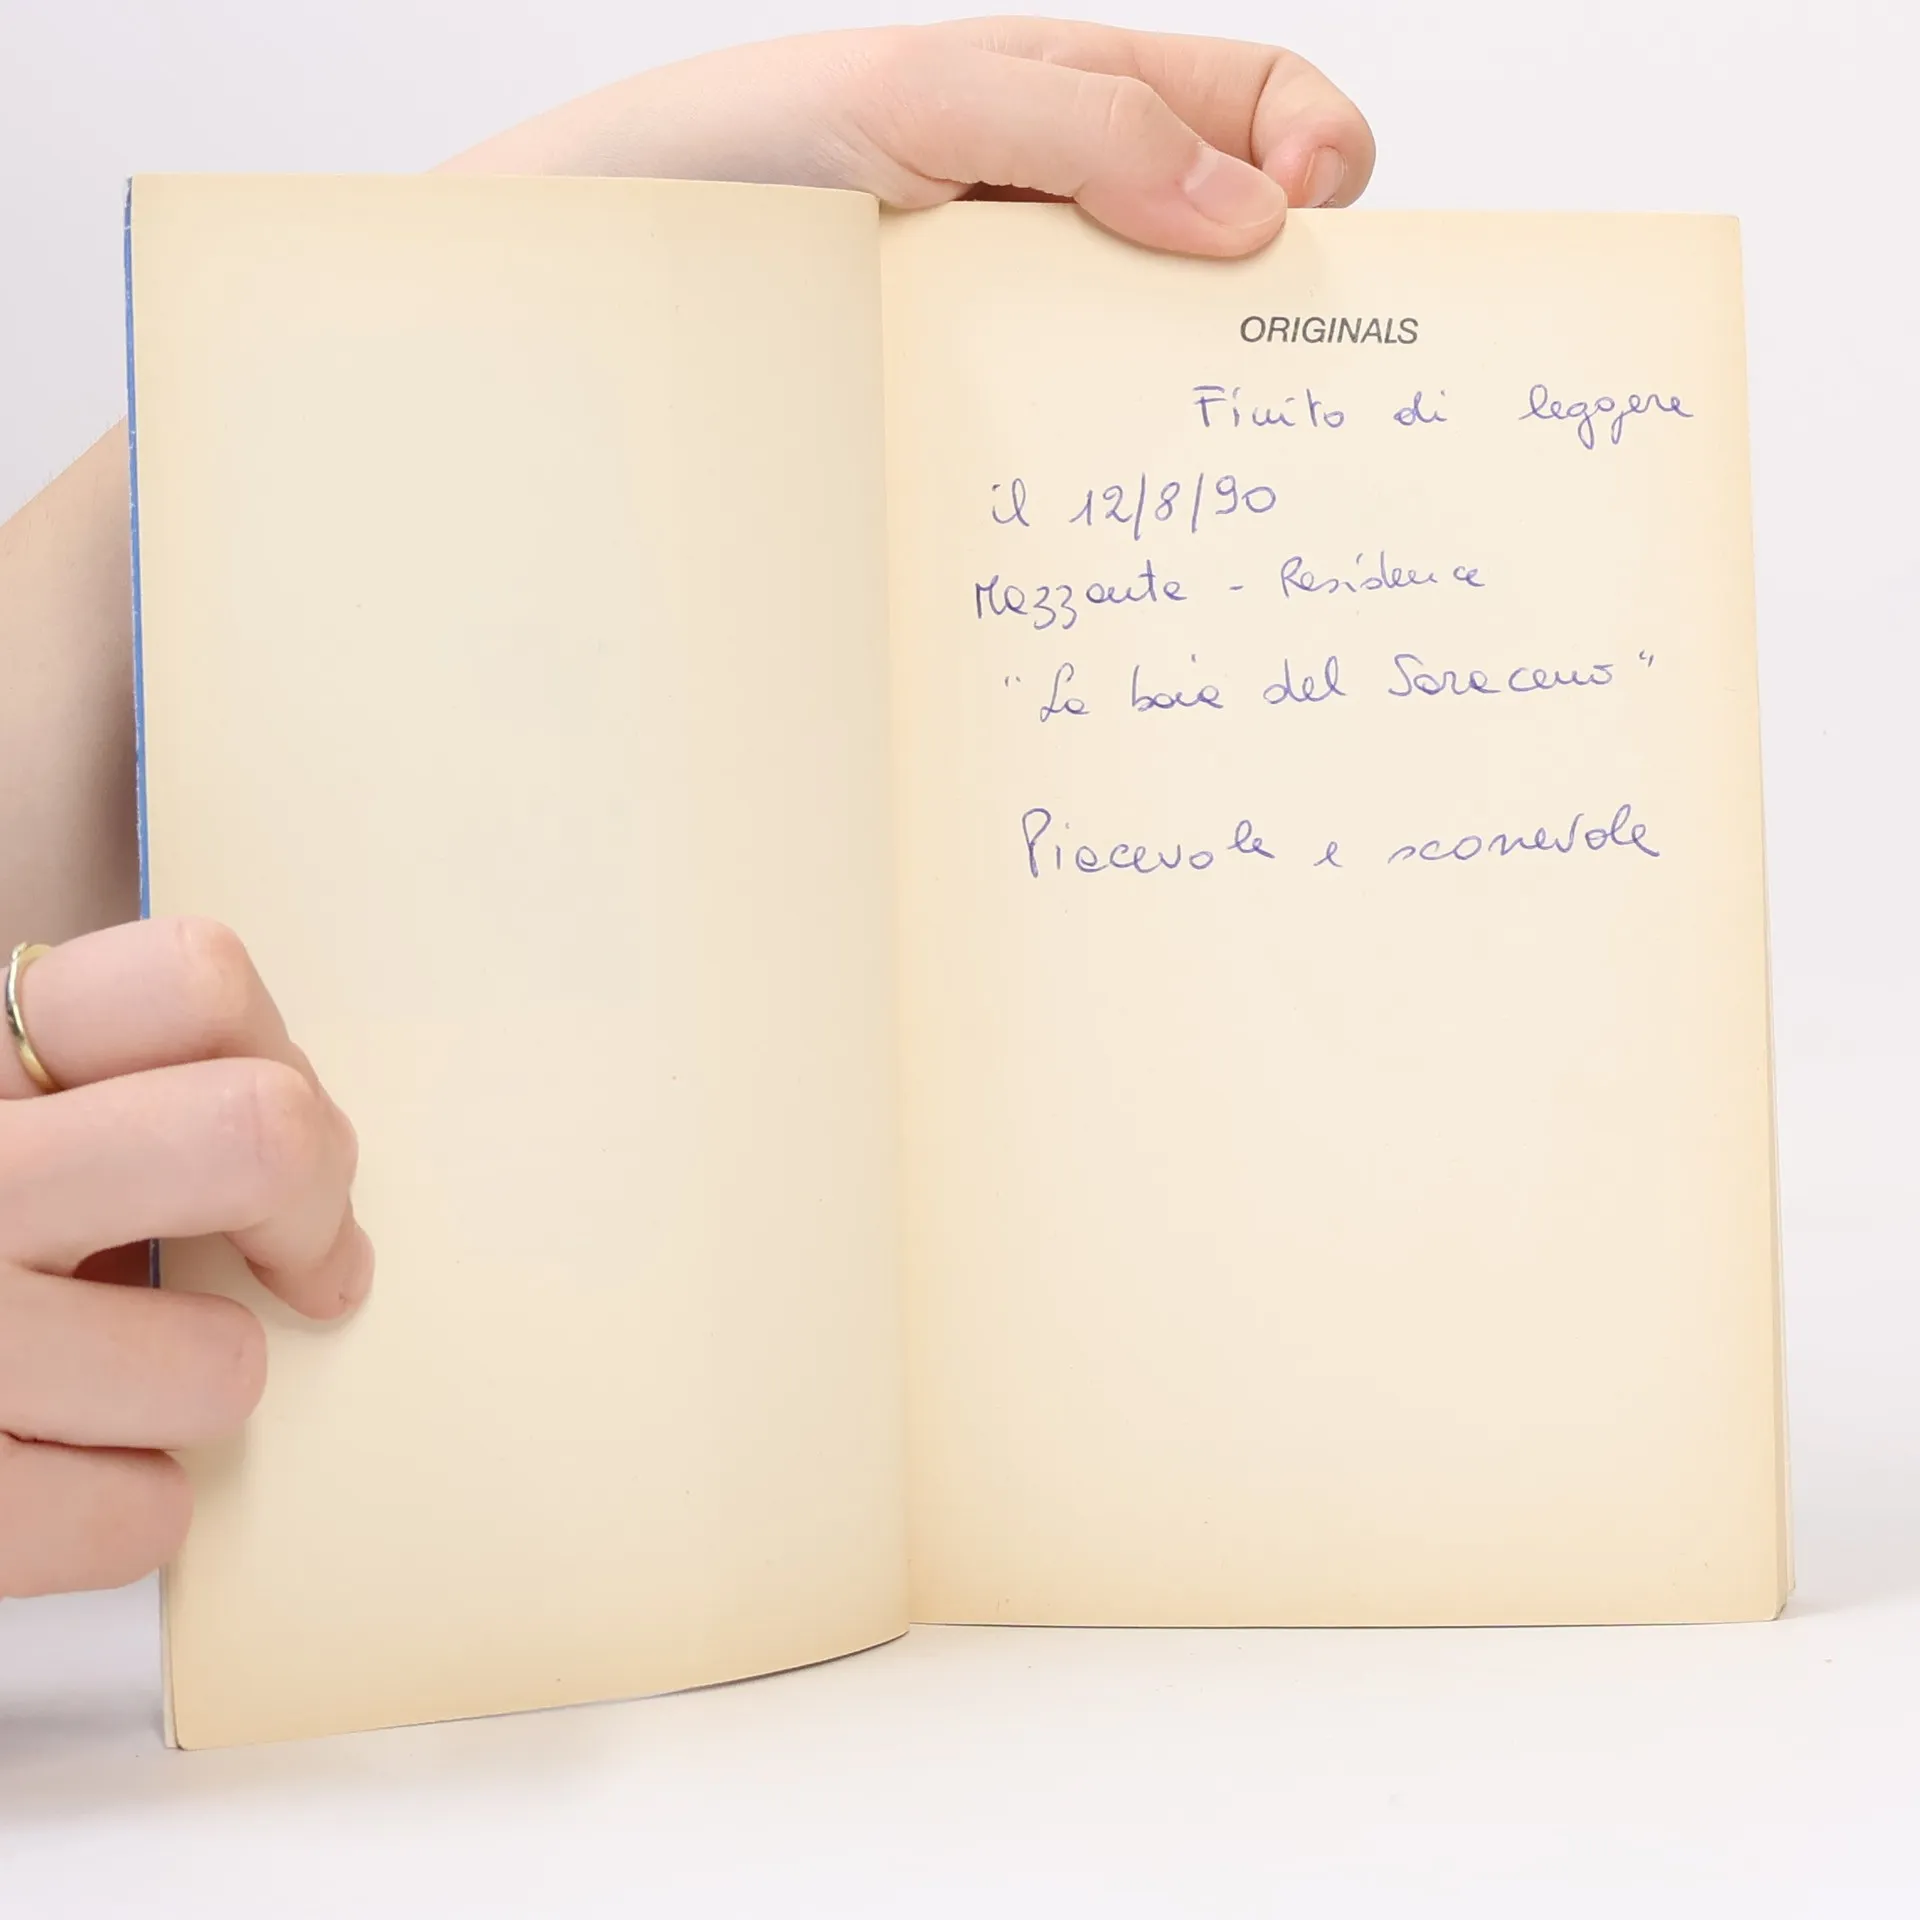 ORIGINALS
Finito di leggere
il 12/8/90
Mazzante - Residence
"La baia del Saraceno"
Piacevole e scorrevole